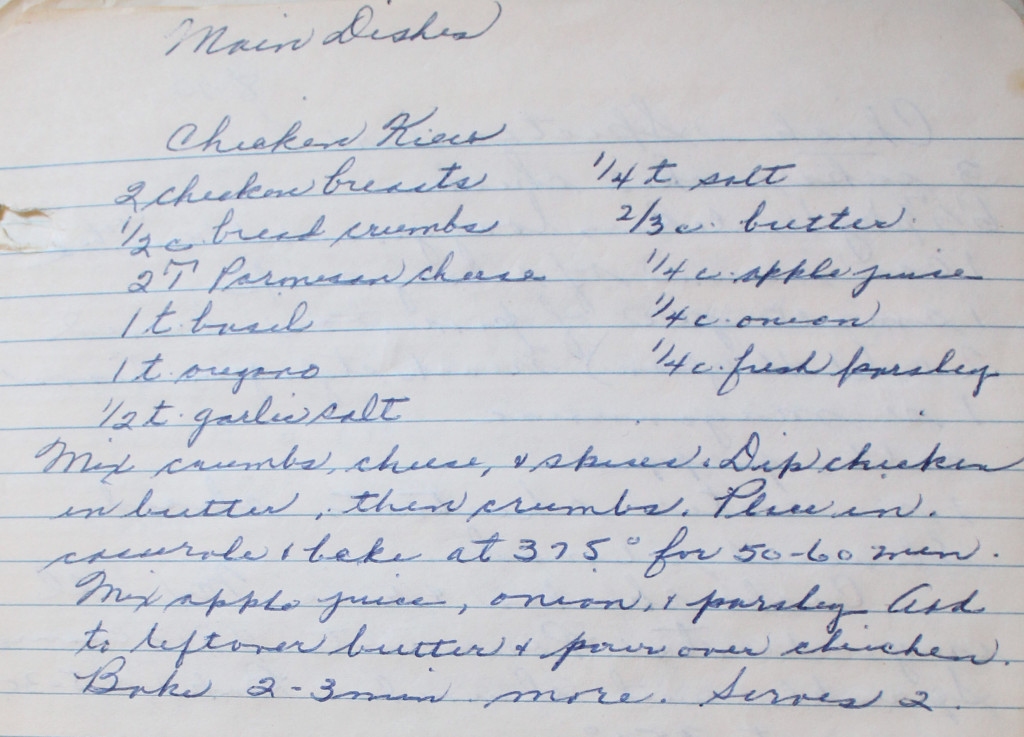 Main Dishes
Chicken Kiev
2 chicken breasts
1/2 c. bread crumbs
2 T Parmesan cheese
1 t. basil
1 t. oregano
1/2 t. garlic salt
1/4 t. salt
2/3 c. butter
1/4 c. apple juice
1/4 c. onion
1/4 c. fresh parsley
Mix crumbs, cheese, & spices. Dip chicken
in butter, then crumbs. Place in
casserole & bake at 375° for 50-60 min.
Mix apple juice, onion, & parsley Add
to leftover butter & pour over chicken.
Bake 2-3 min more. Serves 2.